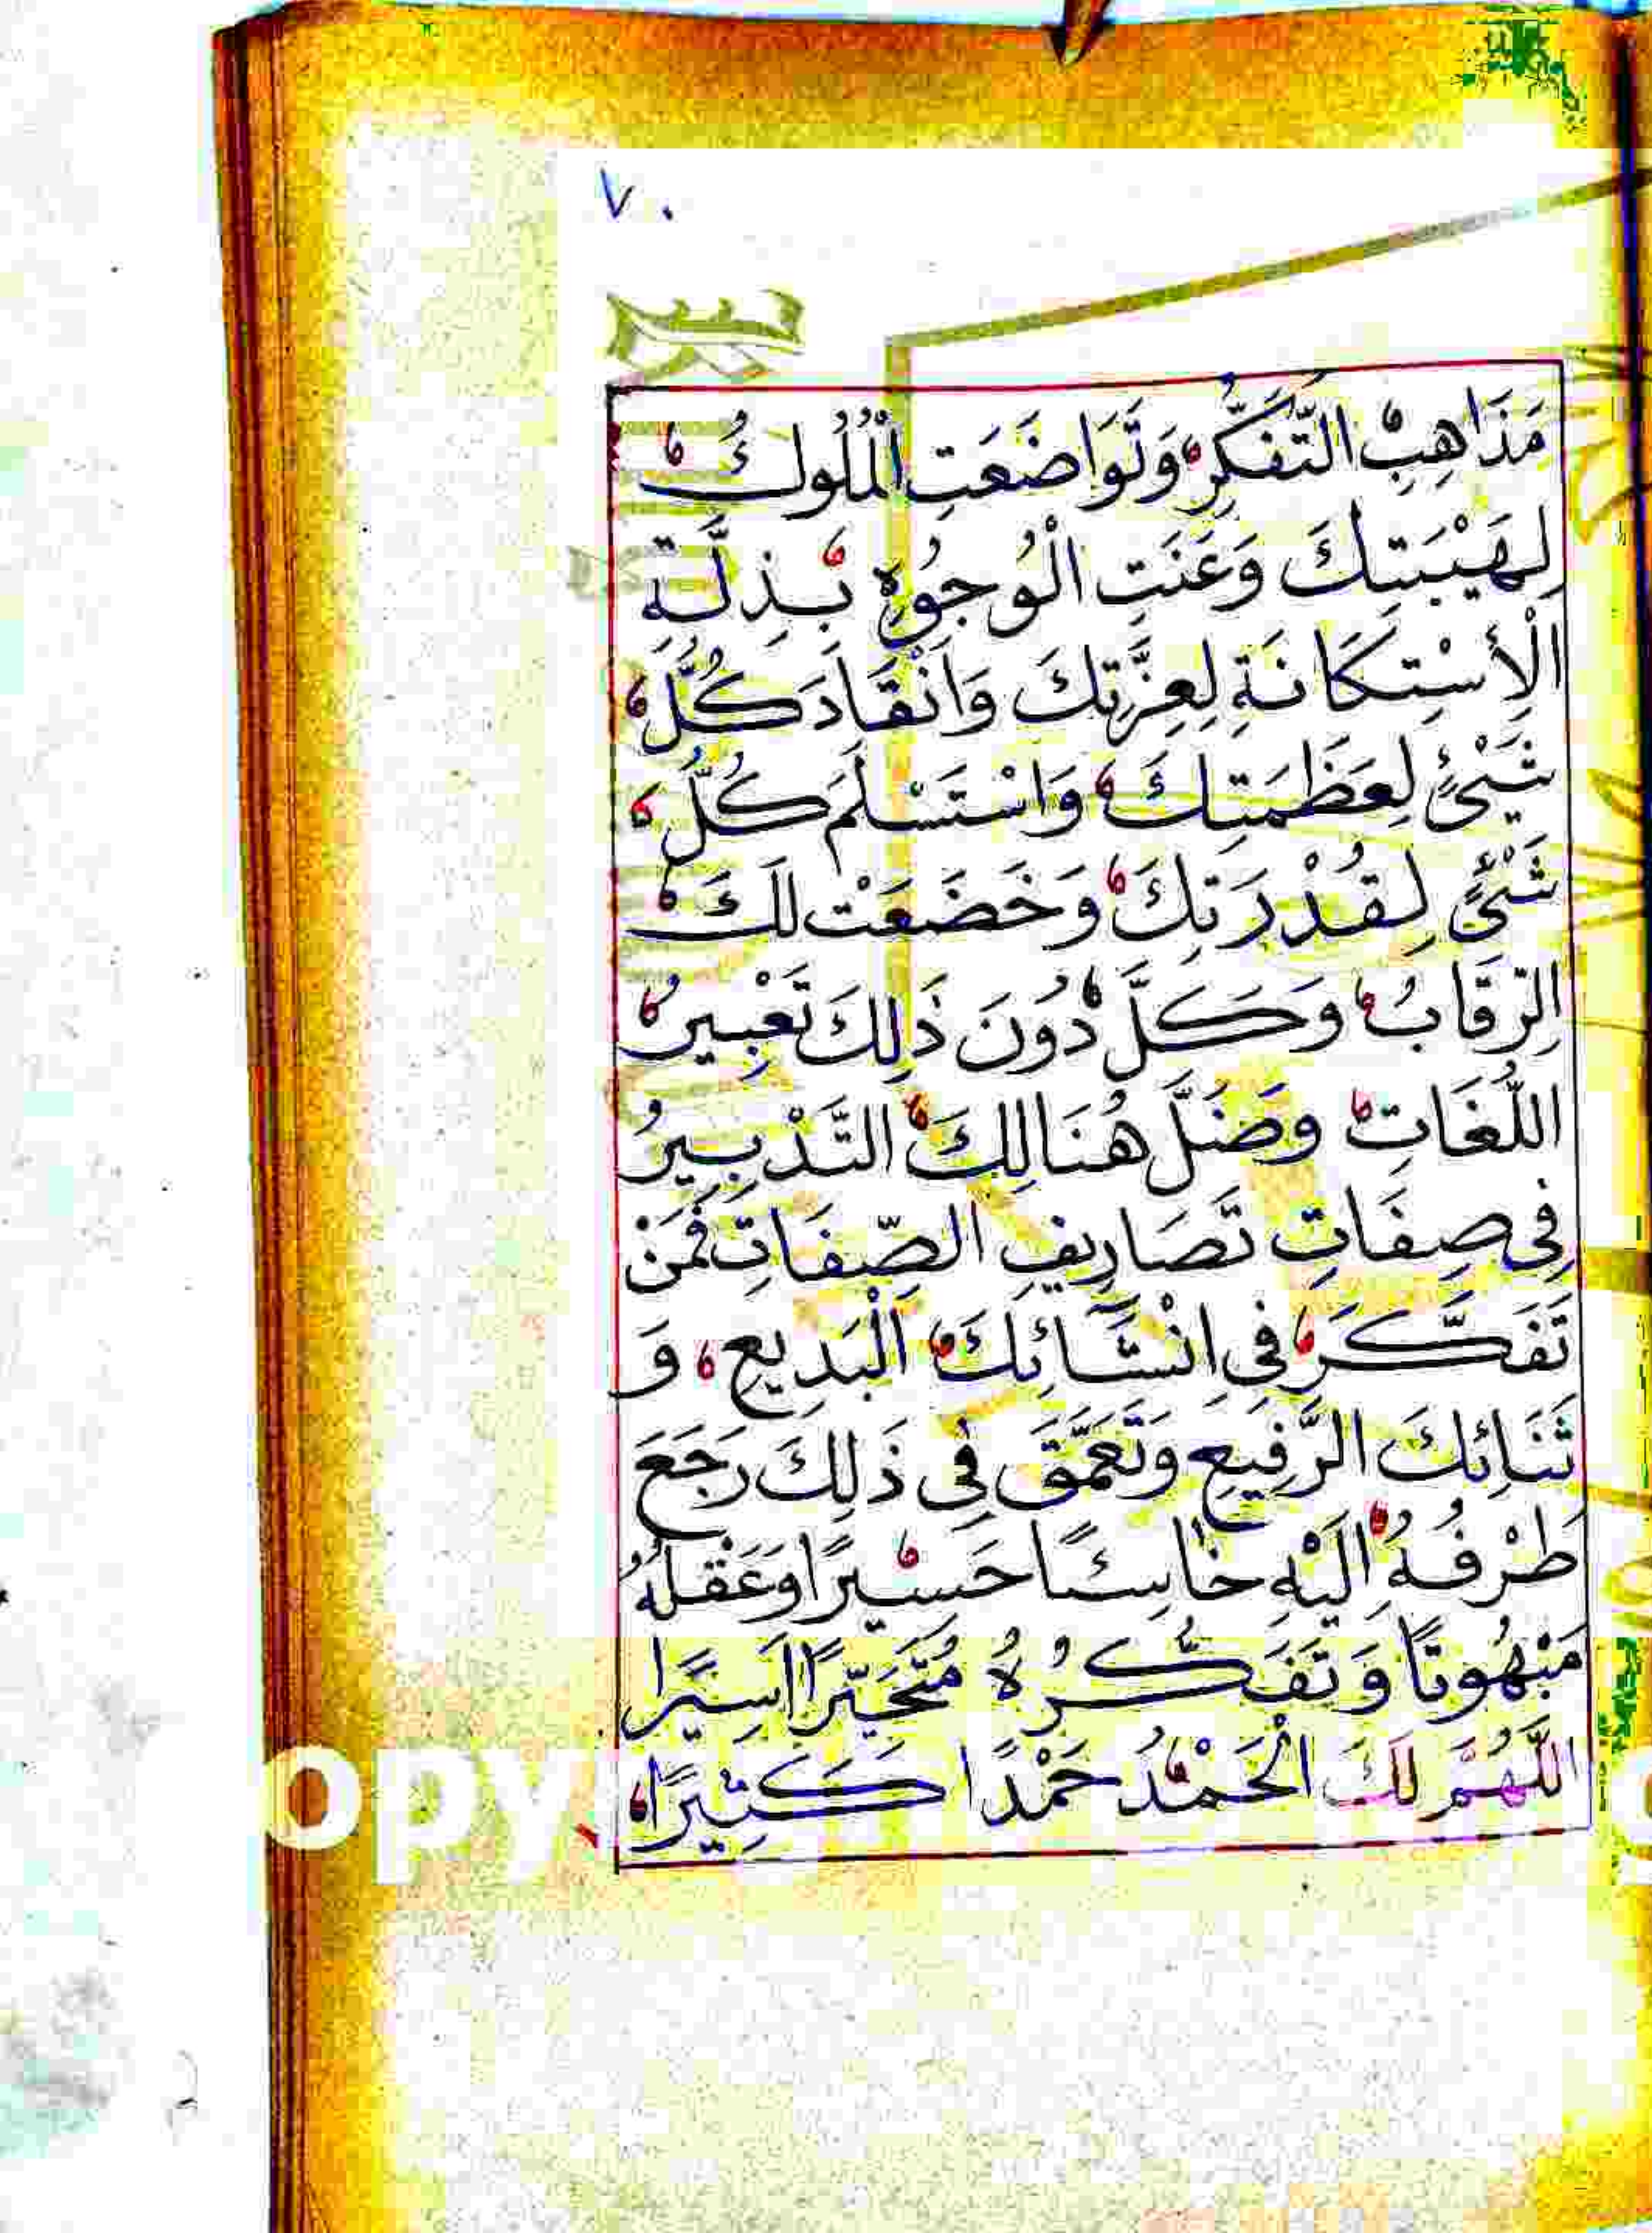 ٧٠
مَذَاهِبُ التَّفَكُّرِ وَتَوَاضَعَتِ الْمُلُوكُ
لِهَيْبَتِكَ وَعَنَتِ الْوُجُوهُ بِذِلَّةِ
الْأِسْتِكَانَةِ لِعِزَّتِكَ وَانْقَادَ كُلُّ
شَيْئٍ لِعَظَمَتِكَ وَاسْتَسْلَمَ كُلُّ
شَيْئٍ لِقُدْرَتِكَ وَخَضَعَتْ لَكَ
الرِّقَابُ وَكَلَّ دُونَ ذَلِكَ تَعْبِيرُ
اللُّغَاتِ وَضَلَّ هُنَالِكَ التَّدْبِيرُ
فِي صِفَاتِ تَصَارِيفِ الصِّفَاتِ فَمَنْ
تَفَكَّرَ فِي اِنْشَائِكَ الْبَدِيعِ وَ
ثَنَائِكَ الرَّفِيعِ وَتَعَمَّقَ فِي ذَلِكَ رَجَعَ
طَرْفُهُ اِلَيْهِ خَاسِئًا حَسِيرًا وَعَقْلُهُ
مَبْهُوتًا وَتَفَكُّرُهُ مُتَحَيِّرًا اَسِيرًا
اَللَّهُمَّ لَكَ الْحَمْدُ حَمْدًا كَثِيرًا
opy